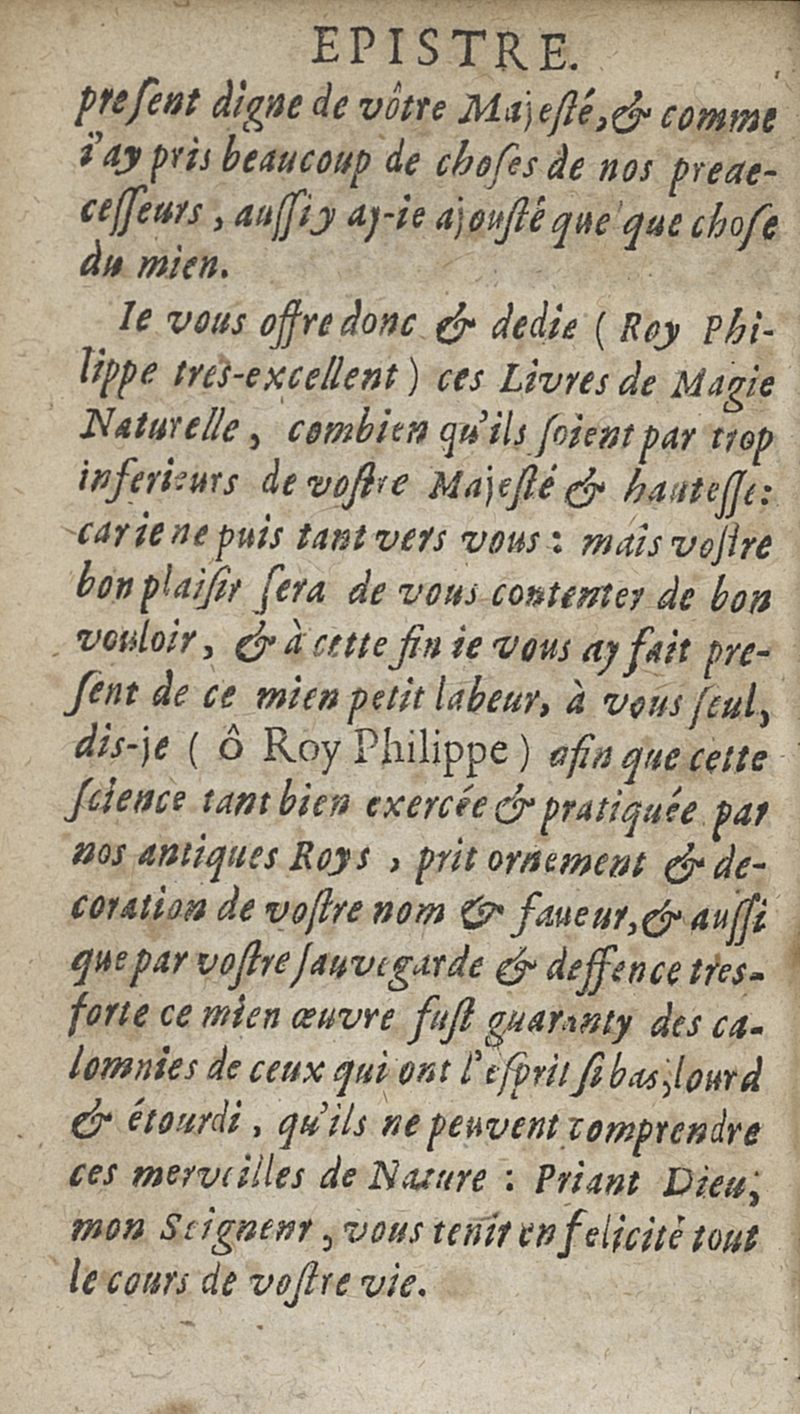 EPISTRE.
preſent digne de vôtre Majeſté, & comme
i'ay pris beaucoup de choſes de nos preae-
ceſſeurs, auſſi y ay-ie ajouſté que'que choſe
du mien.
Ie vous offre donc & dedie (Roy Phi-
lippe tres-excellent) ces Livres de Magie
Naturelle, combien qu'ils ſoient par trop
inferieurs de voſtre Majeſté & hauteſſe:
car ie ne puis tant vers vous: mais voſtre
bon plaiſir ſera de vous contenter de bon
vouloir, & à cette fin ie vous ay fait pre-
ſent de ce mien petit labeur, à vous ſeul,
dis-je (ô Roy Philippe) afin que cette
ſcience tant bien exercée & pratiquée par
nos antiques Roys, prit ornement & de-
coration de voſtre nom & faueur, & auſſi
que par voſtre ſauvegarde & deffence tres-
forte ce mien œuvre fuſt guaranty des ca-
lomnies de ceux qui ont l'eſprit ſi bas, lourd
& étourdi, qu'ils ne peuvent comprendre
ces merveilles de Nature: Priant Dieu,
mon Seigneur, vous tenir en felicité tout
le cours de voſtre vie.